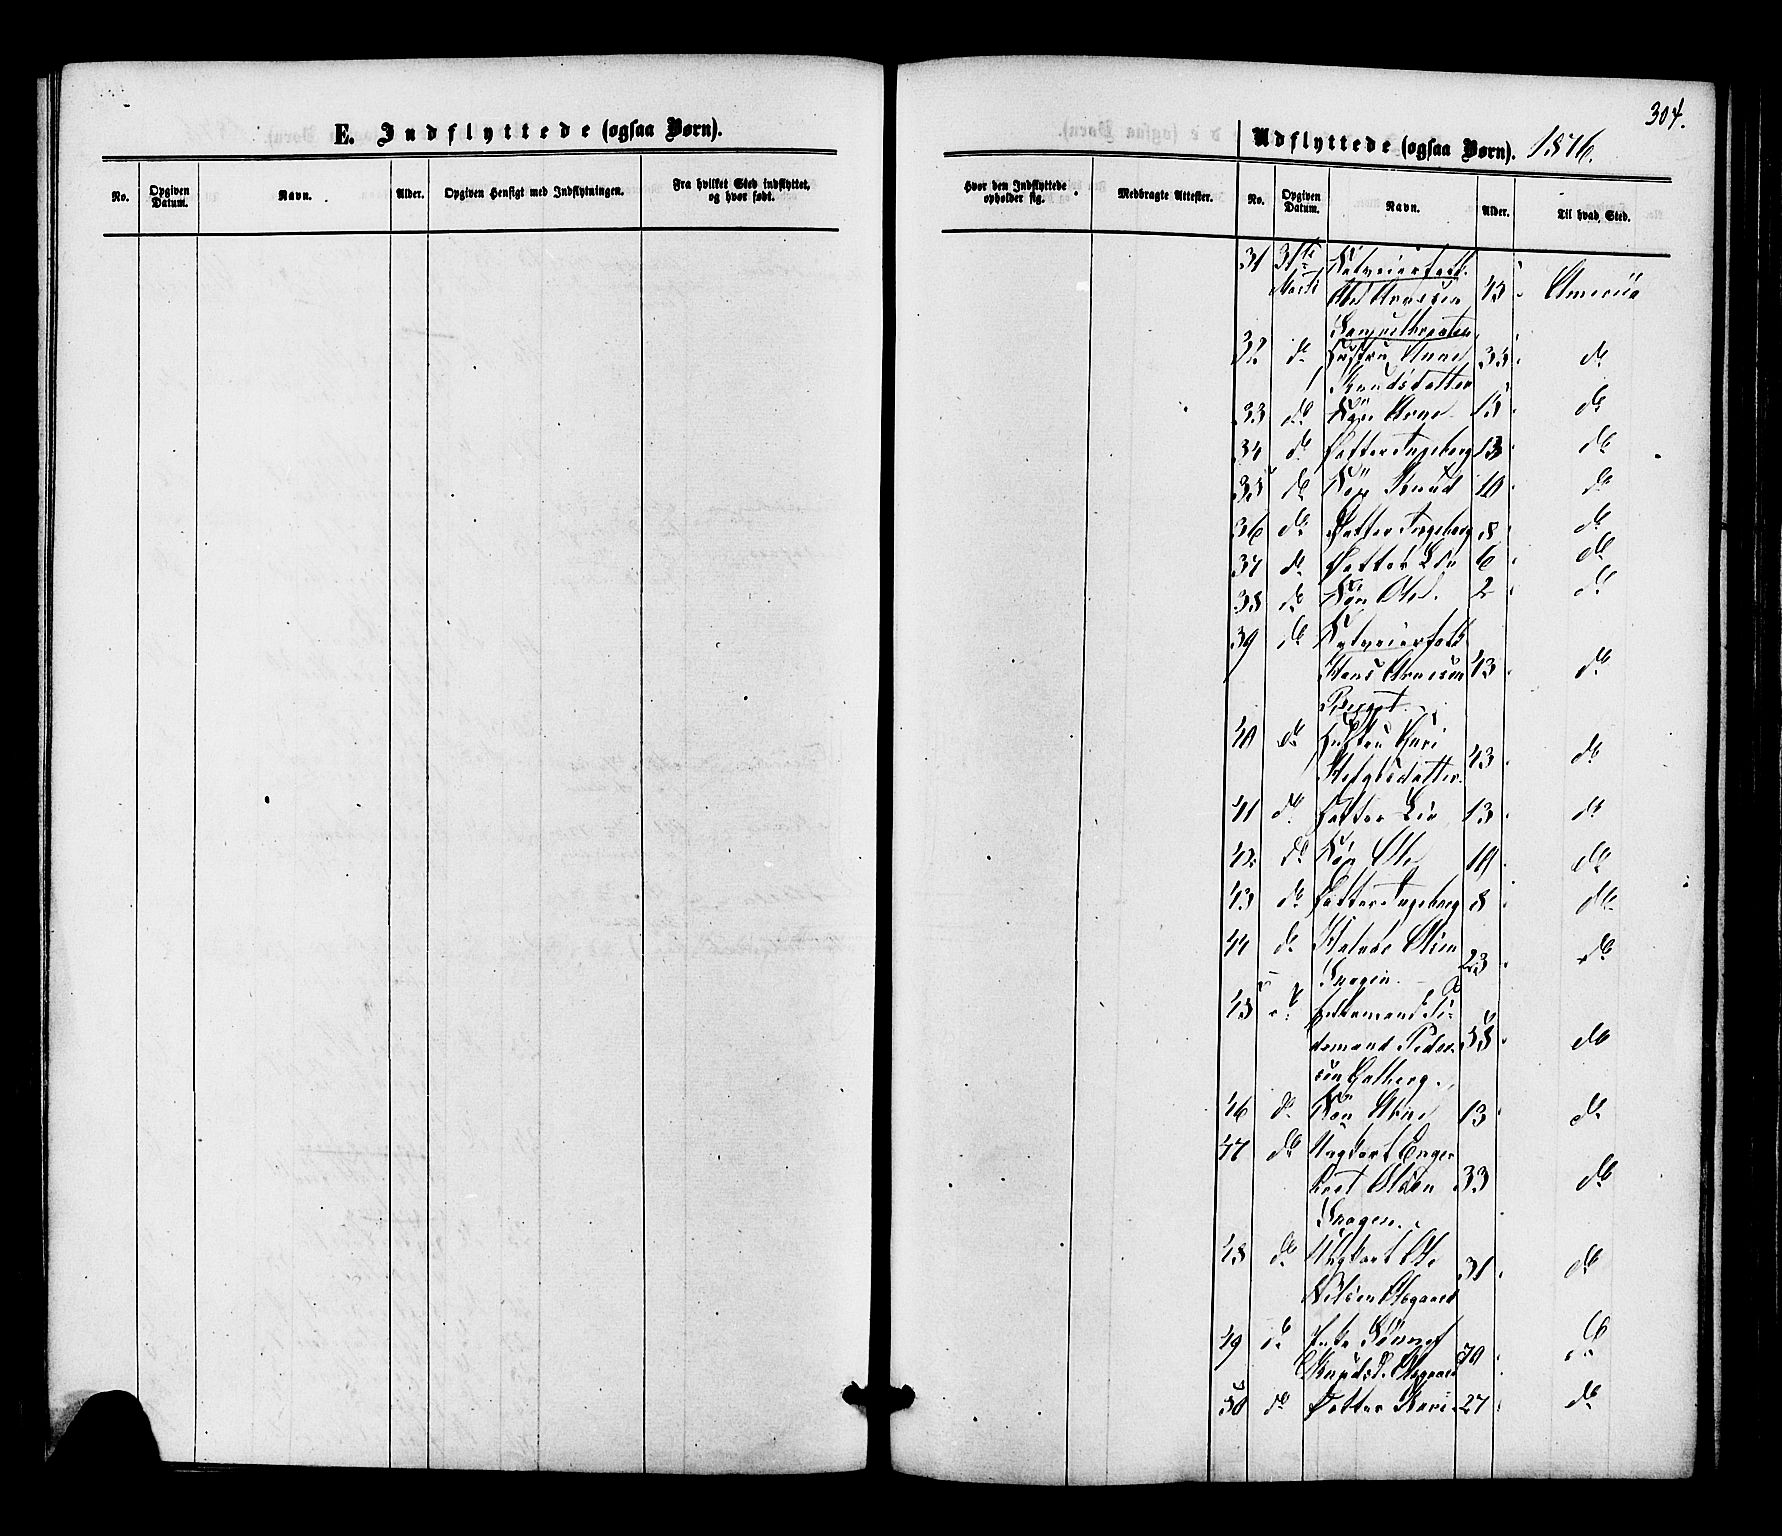 304.
E. Indflyttede (ogsaa Børn).
Udflyttede (ogsaa Børn). 1876.
No. Opgiven Datum. Navn. Alder. Opgiven Hensigt med Indflytningen. Fra hvilket Sted indflyttet, og hvor født.
Hvor den Indflyttede opholder sig. Medbragte Attester. No. Opgiven Datum. Navn. Alder. Til hvad Sted.
31 31te Marts Selveierfolk
Arnesen 45 Amerika
32 do Hustru Anne 35 do
Knudsdatter
33 do Søn Arne 15 do
34 do Datter Ingeborg 13 do
35 do Søn Knud 10 do
36 do Datter Ingeborg 8 do
37 do Datter Liv 6 do
38 do Søn Ole 2 do
39 do Selveierfolk
Hans Arnesen 43 do
40 do Hustru Guri
Helgesdatter 43 do
41 do Datter Liv 13 do
42 do Søn Ole 10 do
43 do Datter Ingeborg 8 do
44 do Halvor Olsen
Kragen 23 do
45 do Enkemand Ti-
demand Peder- 55 do
sen Galberg.
46 do Søn Arne 13 do
47 do Ungkarl Enge-
bret Olsen 33 do
Kragen.
48 do Ungkarl Ole
Nilsen Olsgaard 31 do
49 do Enke
Knudsd. Olsgaard 70 do
50 do Datter Kari 27 do